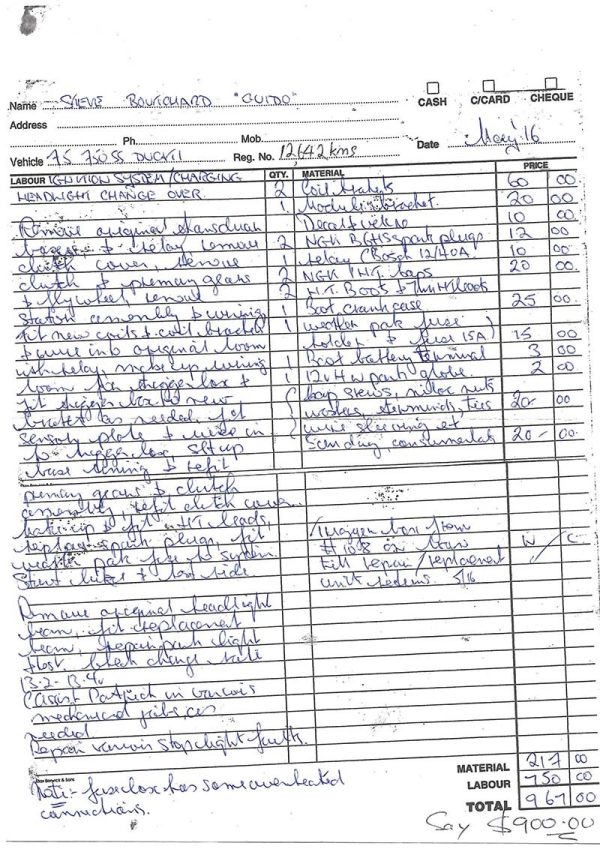 CASH C/CARD CHEQUE
Name STEVE BOUKCHARD "GUIDO"
Address
Ph. Mob. Date May '16
Vehicle 75 750SS DUCATI Reg. No. 12,642 kms
LABOUR IGNITION SYSTEM/CHARGING QTY. MATERIAL PRICE
HEADLIGHT CHANGE OVER. 2 Coil brackets 60 00
1 Module bracket 20 00
Remove original 10 00
& relay remove 2 NGK spark plugs 12 00
clutch cover, remove 1 relay (Bosch 12/40A) 10 00
clutch & primary gears 2 NGK H.T. caps 20 00
& flywheel remove 2 H.T. Boots & H.T. leads
stator assembly & wiring 1 Boot, crankcase 25 00
fit new coils & coil bracket 1 weather pak fuse
& wire into original loom holder & fuse 15A) 15 00
with relay, make up wiring 1 Boot battery terminal 3 00
loom for trigger box & 1 12v4w park globe 2 00
fit trigger box to new cap screws, nyloc nuts
bracket as needed, fit washers, ties 20- 00
sensor plate & wire in wire sleeving et
to trigger box, set up Sundry, consumerals 20- 00
base timing & refit
primary gears & clutch
assembly, refit clutch cover
& fit HT leads, trigger box from
replace spark plugs, fit #108 on loan N/C
weather pak fuse to system till repair/replacement
Start bike & test ride unit 5/16
Remove original headlight
beam, fit replacement
beam, repair park light
test charge rate
13.2-13.4v
(Assist Patrick in various
mechanical jobs, as
needed
Repair various stop light faults.
MATERIAL 217 00
Note:- fuse box has some overheated LABOUR 750 00
connections. TOTAL 967 00
Say $900.00